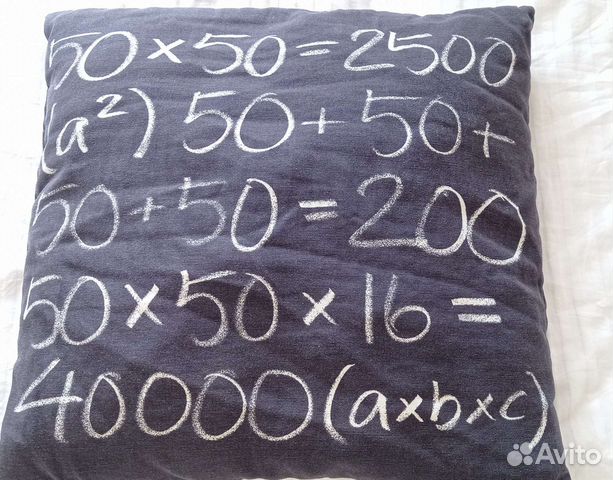 50×50=2500
(a²) 50+50+
50+50=200
50×50×16=
40000(a×b×c)
Avito